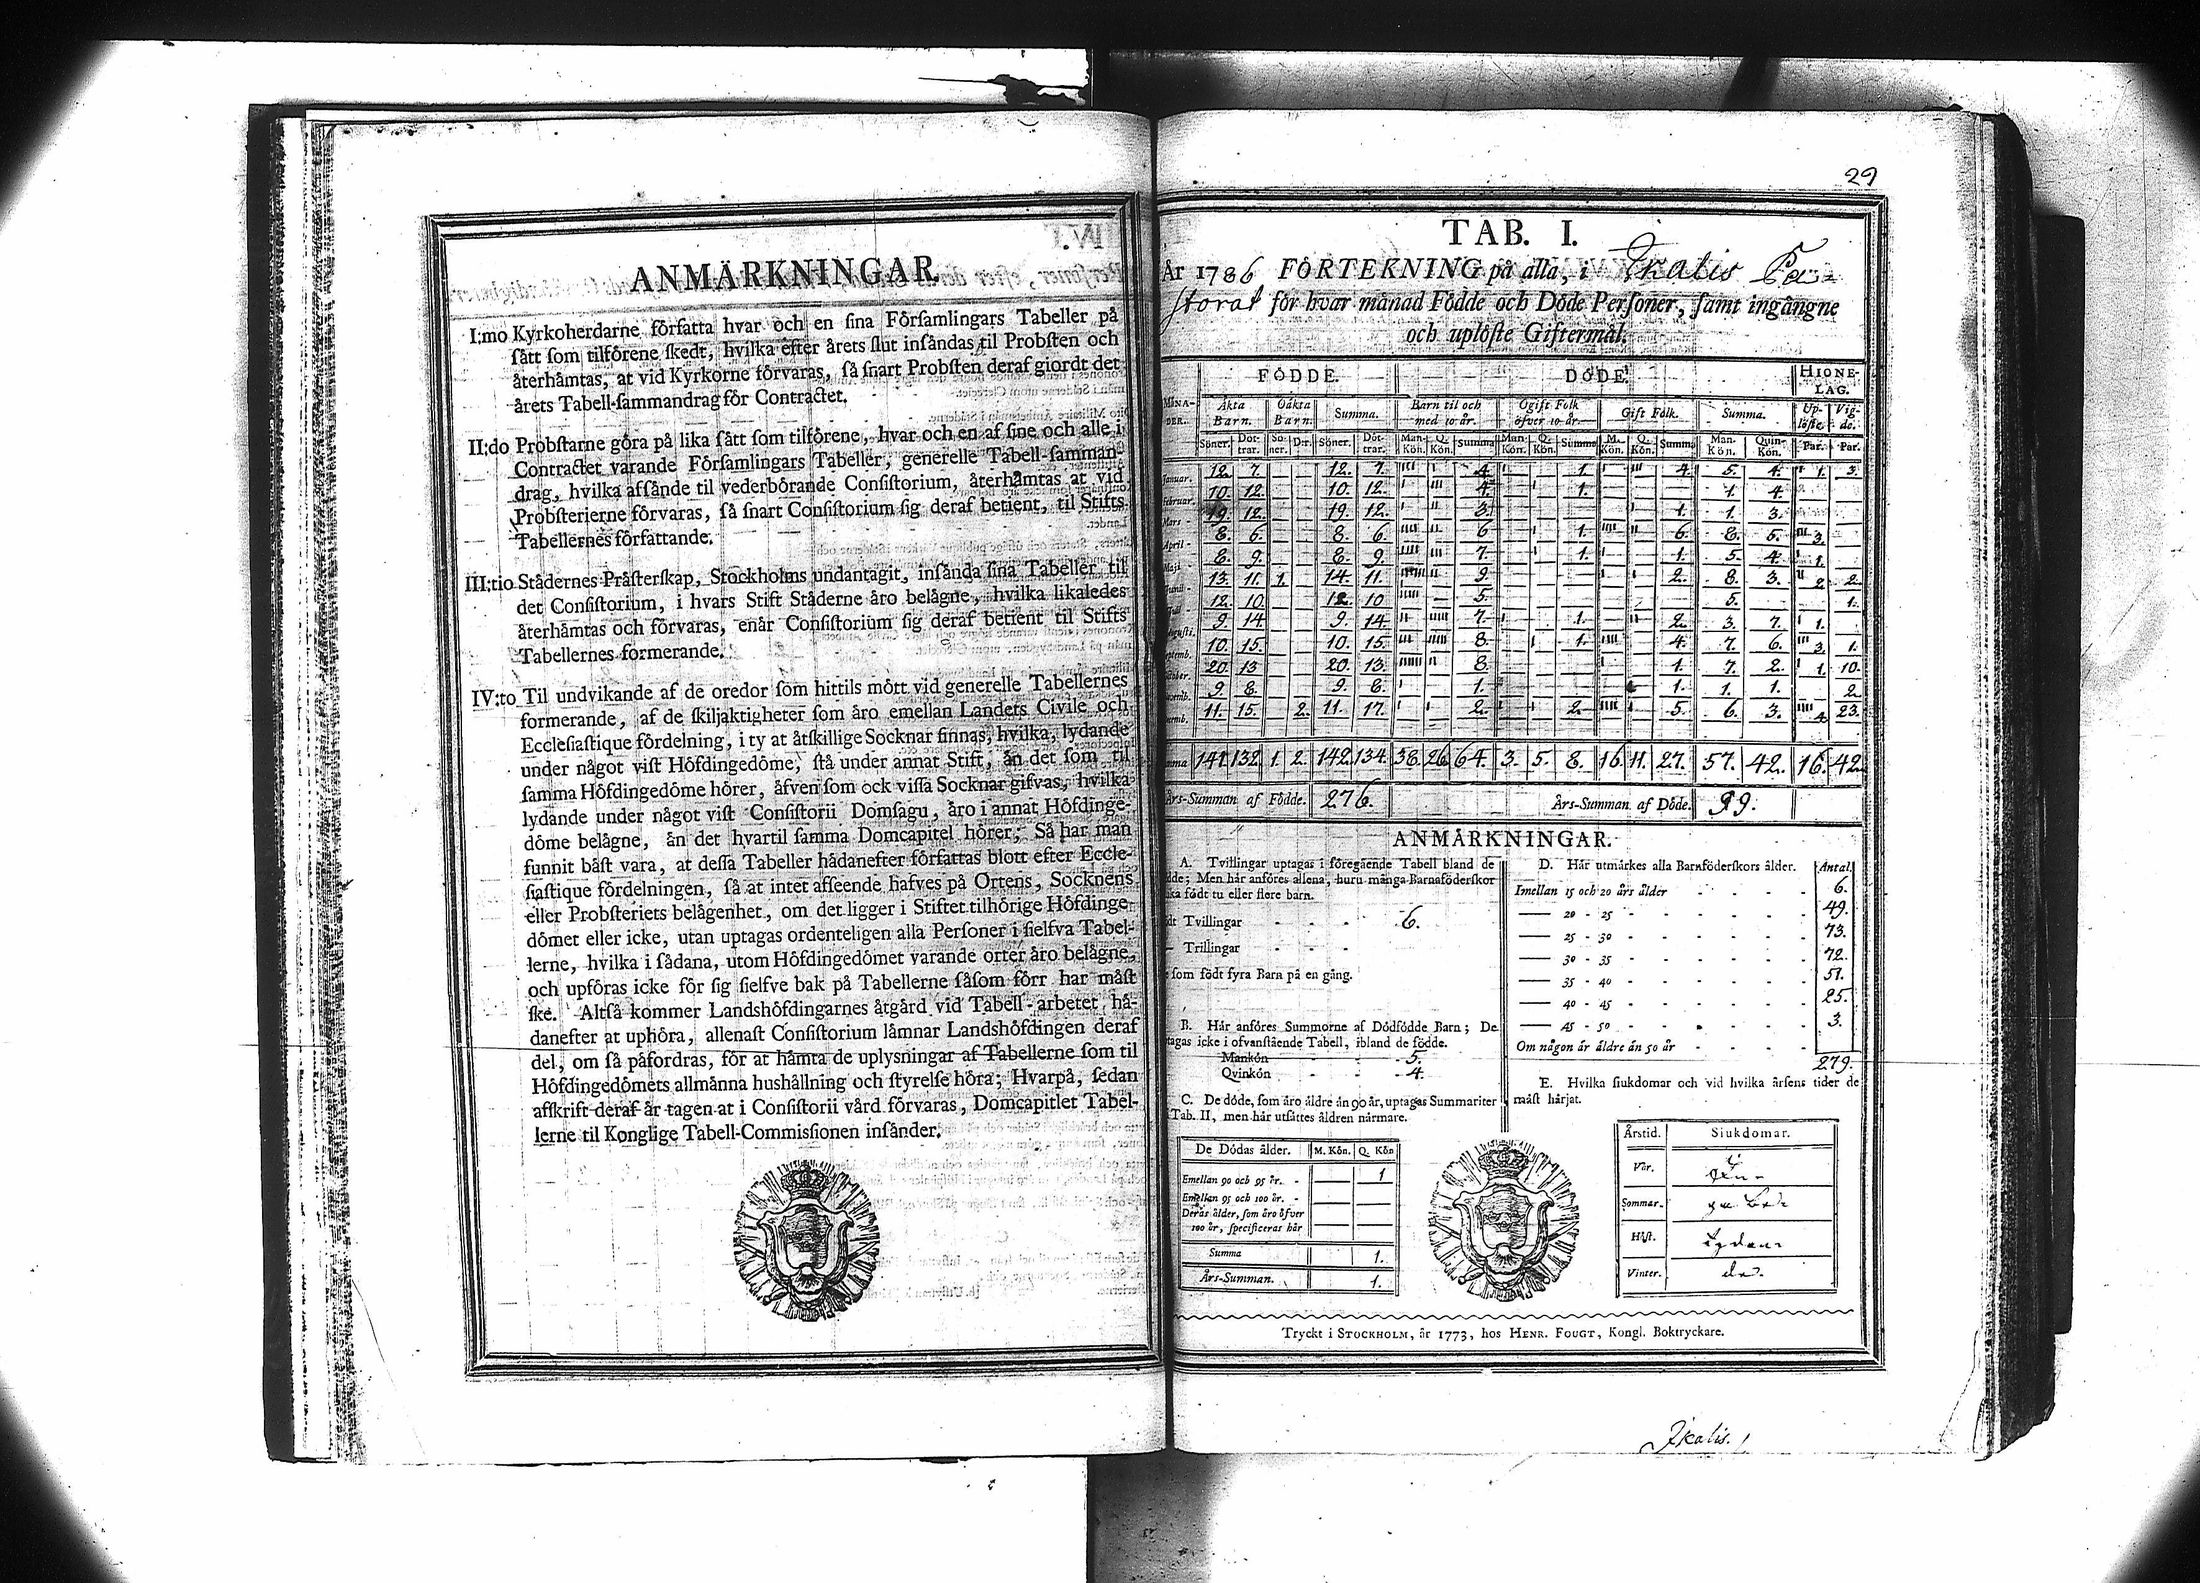 ANMÄRKNINGAR.
I:mo Kyrkoherdarne författa hvar och en sina Församlingars Tabeller på
sått som tilförene skedt, hvilka efter årets slut insåndas til Probsten och
återhåmtas, at vid Kyrkorne förvaras, så snart Probsten deraf giordt det
årets Tabell-sammandrag för Contractet.
II:do Probstarne göra på lika sått som tilförene, hvar och en af sine och alle i
Contractet varande Församlingars Tabeller, generelle Tabell-samman-
drag, hvilka afsånde til vederbörande Consistorium, återhåmtas at vid
Probsterierne förvaras, så snart Consistorium sig deraf betient, til Stifts
Tabellernes författande.
III:tio Städernes Prästerskap, Stockholms undantagit, insånda sina Tabeller til
det Consistorium, i hvars Stift Ståderne åro belågne, hvilka likaledes
återhåmtas och förvaras, enår Consistorium sig deraf betient til Stifts
Tabellernes formerande.
IV:to Til undvikande af de oredor som hittils mött vid generelle Tabellernes
formerande, af de skiljaktigheter som åro emellan Landets Civile och
Ecclesiastique fördelning, i ty at åtskillige Socknar finnas, hvilka, lydande
under något vist Höfdingedöme, stå under annat Stift, ån det som til
samma Höfdingedöme hörer, åfven som ock vissa Socknar gifvas, hvilka
lydande under något vist Consistorii Domsagu, åro i annat Höfdinge-
döme belågne, ån det hvartil samma Domcapitel hörer; Så har man
funnit båst vara, at dessa Tabeller hådanefter författas blott efter Eccle-
siastique fördelningen, så at intet afseende hafves på Ortens, Socknens
eller Probsteriets belågenhet, om det ligger i Stiftet tilhörige Höfdinge-
dömet eller icke, utan uptagas ordenteligen alla Personer i sielfva Tabel-
lerne, hvilka i sådana, utom Höfdingedömet varande orter åro belågne,
och upföras icke för sig sielfve bak på Tabellerne såsom förr har måst
ske. Altså kommer Landshöfdingarnes åtgård vid Tabell-arbetet hå-
danefter at uphöra, allenast Consistorium låmnar Landshöfdingen deraf
del, om så påfordras, för at håmta de uplysningar af Tabellerne som til
Höfdingedömets allmånna hushållning och styrelse höra; Hvarpå, sedan
afskrift deraf år tagen at i Consistorii vård förvaras, Domcapitlet Tabel-
lerne til Konglige Tabell-Commissionen insånder.
29
TAB. I.
År 1786 FÖRTEKNING på alla, i Ikalis Pa-
storat för hvar månad Födde och Döde Personer, samt ingångne
och uplöste Giftermål.
MÅNA-DER. FÖDDE. DÖDE. HIONE-LAG.
Äkta Barn. Oäkta Barn. Summa. Barn til och med 10 år. Ogift Folk öfver 10 år. Gift Folk. Summa. Up-löste Vig-de.
Söner. Döt-trar. Sö-ner. D:r. Söner. Döt-trar. Man-Kön. Q. Kön. Summa Man-Kön. Q. Kön. Summa M. Kön. Q. Kön. Summa Man-Kön. Quin-Kön. Par. Par.
Januar. 12. 7. 12. 7. 4. 1. 4. 5. 4. 1. 3.
Februar. 10. 12. 10. 12. 4. 1. 1. 4.
Mars 19. 12. 19. 12. 3. 1. 1. 3.
April 8. 6. 8. 6. 6 1. 6. 8. 5. 3.
Maji 8. 9. 8. 9. 7. 1. 1. 5. 4. 1.
Junii 13. 11. 1. 14. 11. 9. 2. 8. 3. 2. 2.
Juli 12. 10. 12. 10 5. 5. 1.
Augusti. 9. 14. 9. 14. 7. 1. 2. 3. 7. 1.
Septemb. 10. 15. 10. 15. 8. 1. 4. 7. 6. 3. 1.
October. 20. 13 20. 13. 8. 1. 7. 2. 1. 10.
9. 8. 9. 8. 1. 1. 1. 1. 2.
11. 15. 2. 11. 17. 2. 2. 5. 6. 3. 4. 23.
Summa 141. 132. 1. 2. 142. 134. 38. 26. 64. 3. 5. 8. 16. 11. 27. 57. 42. 16. 42.
Års-Summan af Födde. 276. Års-Summan af Döde. 99.
ANMÄRKNINGAR.
A. Tvillingar uptagas i föregående Tabell bland de
Men här anföres allena, huru många Barnaföderskor
födt tu eller flere barn.
Tvillingar 6.
Trillingar
som födt fyra Barn på en gång.
B. Här anföres Summorne af Dödfödde Barn; De
tagas icke i ofvanstående Tabell, ibland de födde.
Mankön 5.
Qvinkön 4.
C. De döde, som äro äldre än 90 år, uptagas Summariter
Tab. II, men här utsättes åldren närmare.
De Dödas ålder. M. Kön. Q. Kön
Emellan 90 och 95 år. 1
Emellan 95 och 100 år.
Deras ålder, som äro öfver
100 år, specificeras här
Summa 1.
Års-Summan. 1.
D. Här utmärkes alla Barnföderskors ålder. Antal.
Imellan 15 och 20 års ålder 6.
20 - 25 49.
25 - 30 73.
30 - 35 72.
35 - 40 51.
40 - 45 25.
45 - 50 3.
Om någon är äldre än 50 år
279.
E. Hvilka siukdomar och vid hvilka årsens tider de
mäst härjat.
Årstid. Siukdomar.
Vår.
Sommar.
Höst.
Vinter.
Tryckt i STOCKHOLM, år 1773, hos HENR. FOUGT, Kongl. Boktryckare.
Ikalis.